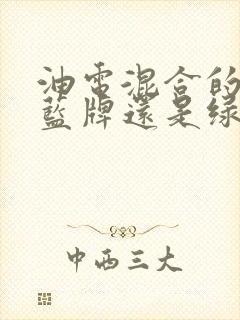 油電混合的
藍牌還是綠
中西三大